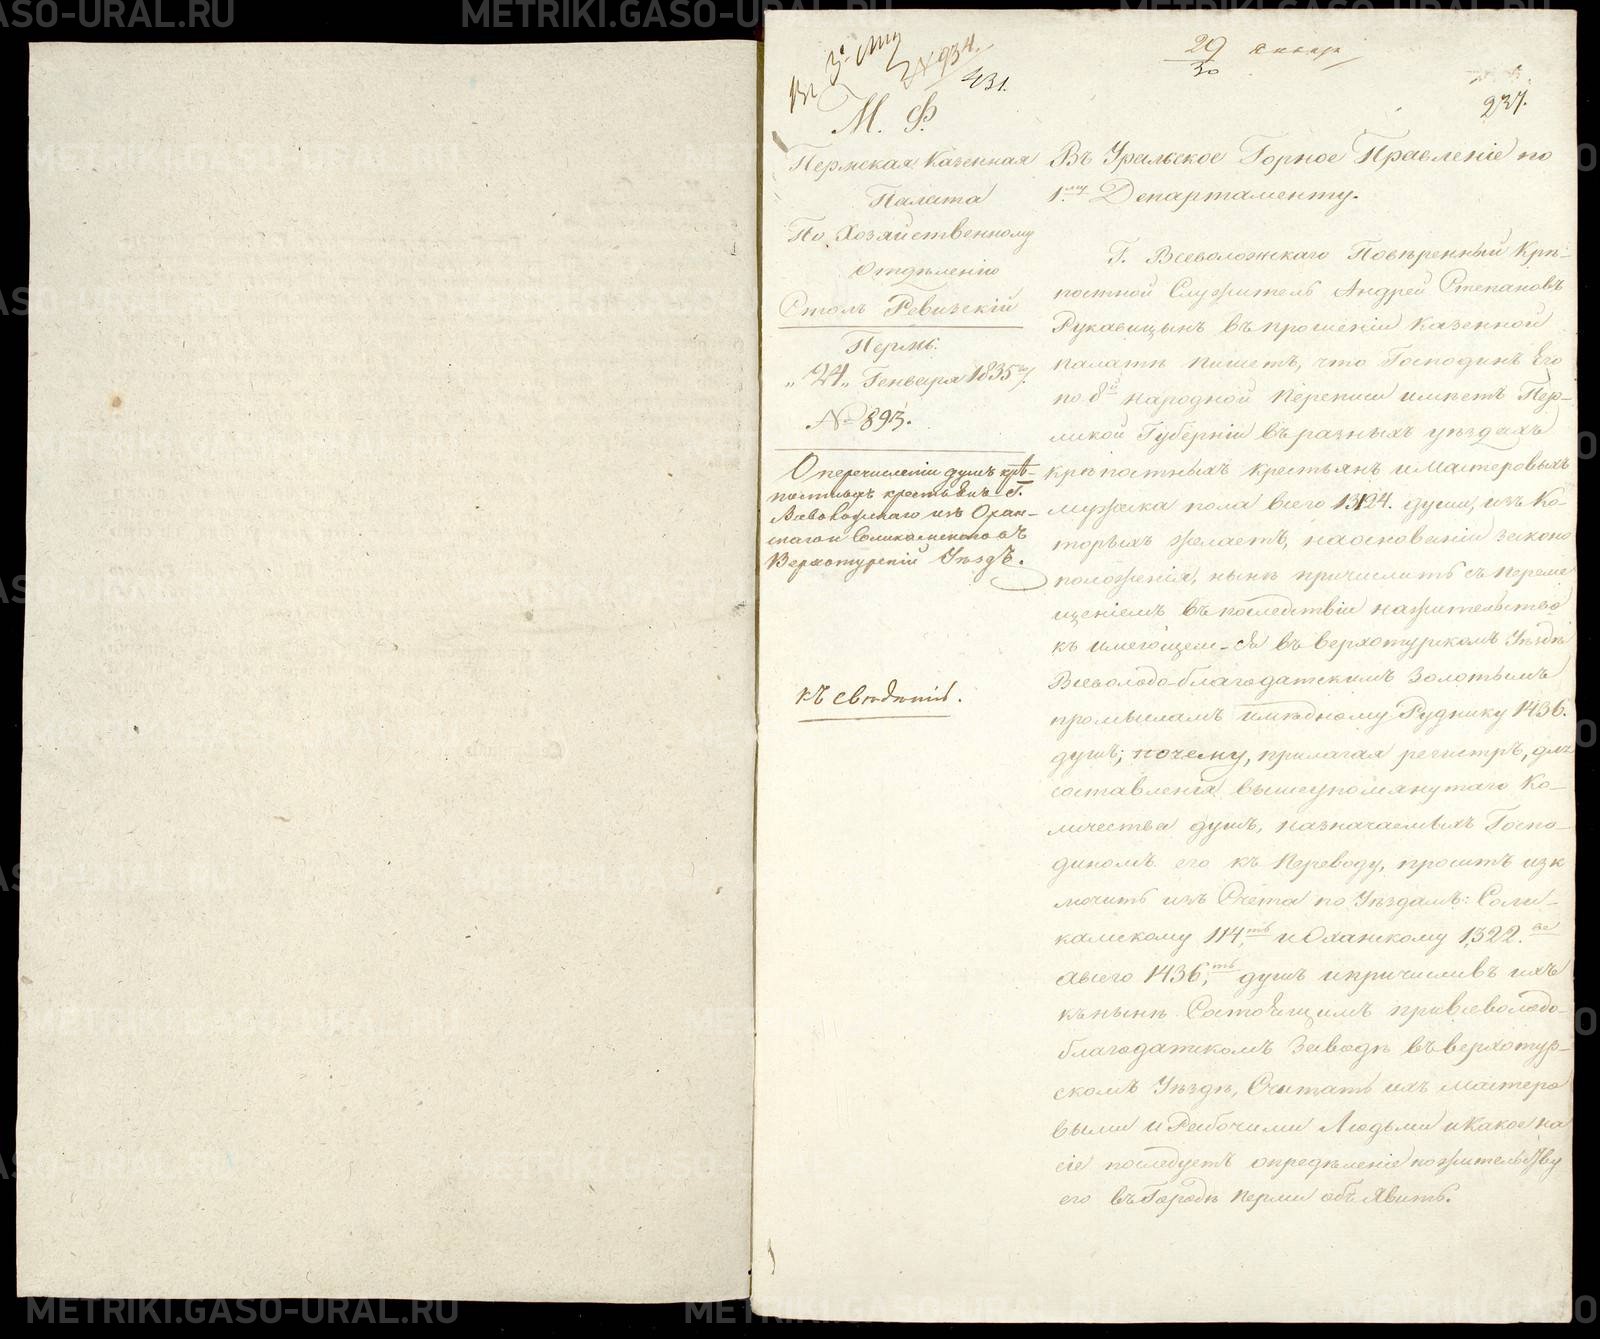 29 января
30
431.
237.
М. Ф.
Пермская Казенная
Палата
По Хозяйственному
Отдѣленію
Столъ Ревизскій
Пермь.
„24„ Генваря 1835 г.
№ 893.
О перечисленіи душъ крѣ-
постныхъ крестьянъ Г.
Всеволожскаго изъ Охан-
скаго и Соликамскаго въ
Верхотурскій Уѣздъ.
къ свѣденію.
Въ Уральское Горное Правленіе по
1.му Департаменту.
Г. Всеволожскаго Повѣренный Крѣ-
постной Служитель Андрей Степановъ
Рукавицынъ въ прошеніи Казенной
палатѣ пишетъ, что Господинъ Его
по 8й народной переписи имѣетъ Пер-
мской Губерніи въ разныхъ уѣздахъ
крѣпостныхъ крестьянъ и Мастеровыхъ
мужеска пола всего 13124. души, изъ Ко-
торыхъ желаетъ, на основаніи законо
положенія, нынѣ причислить съ переме
щеніемъ въ последствіи на жительство
къ имеющем-ся въ верхотурскомъ Уѣздѣ
Всеволодо-благодатскимъ Золотымъ
промысламъ и мѣдному Руднику 1436.
душъ; почему, прилагая регистръ, для
составленія вышеупомянутаго Ко-
личества душъ, назначаемыхъ Госпо-
диномъ его къ переводу, проситъ изк
лючить изъ Счета по Уѣздамъ: Соли-
камскому 114,ть и Оханскому 1,322.ве
а всего 1436,ть душъ и причисливъ ихъ
къ нынѣ Состоящимъ при всеволодо-
благодатскомъ Заводѣ въ верхотур-
скомъ Уѣздѣ, Считать ихъ мастеро
выми и Рабочими Людьми и Какое на
сіе последуетъ определеніе по жительству
его въ Городѣ Перми объявить.
METRIKI.GASO-URAL.RU